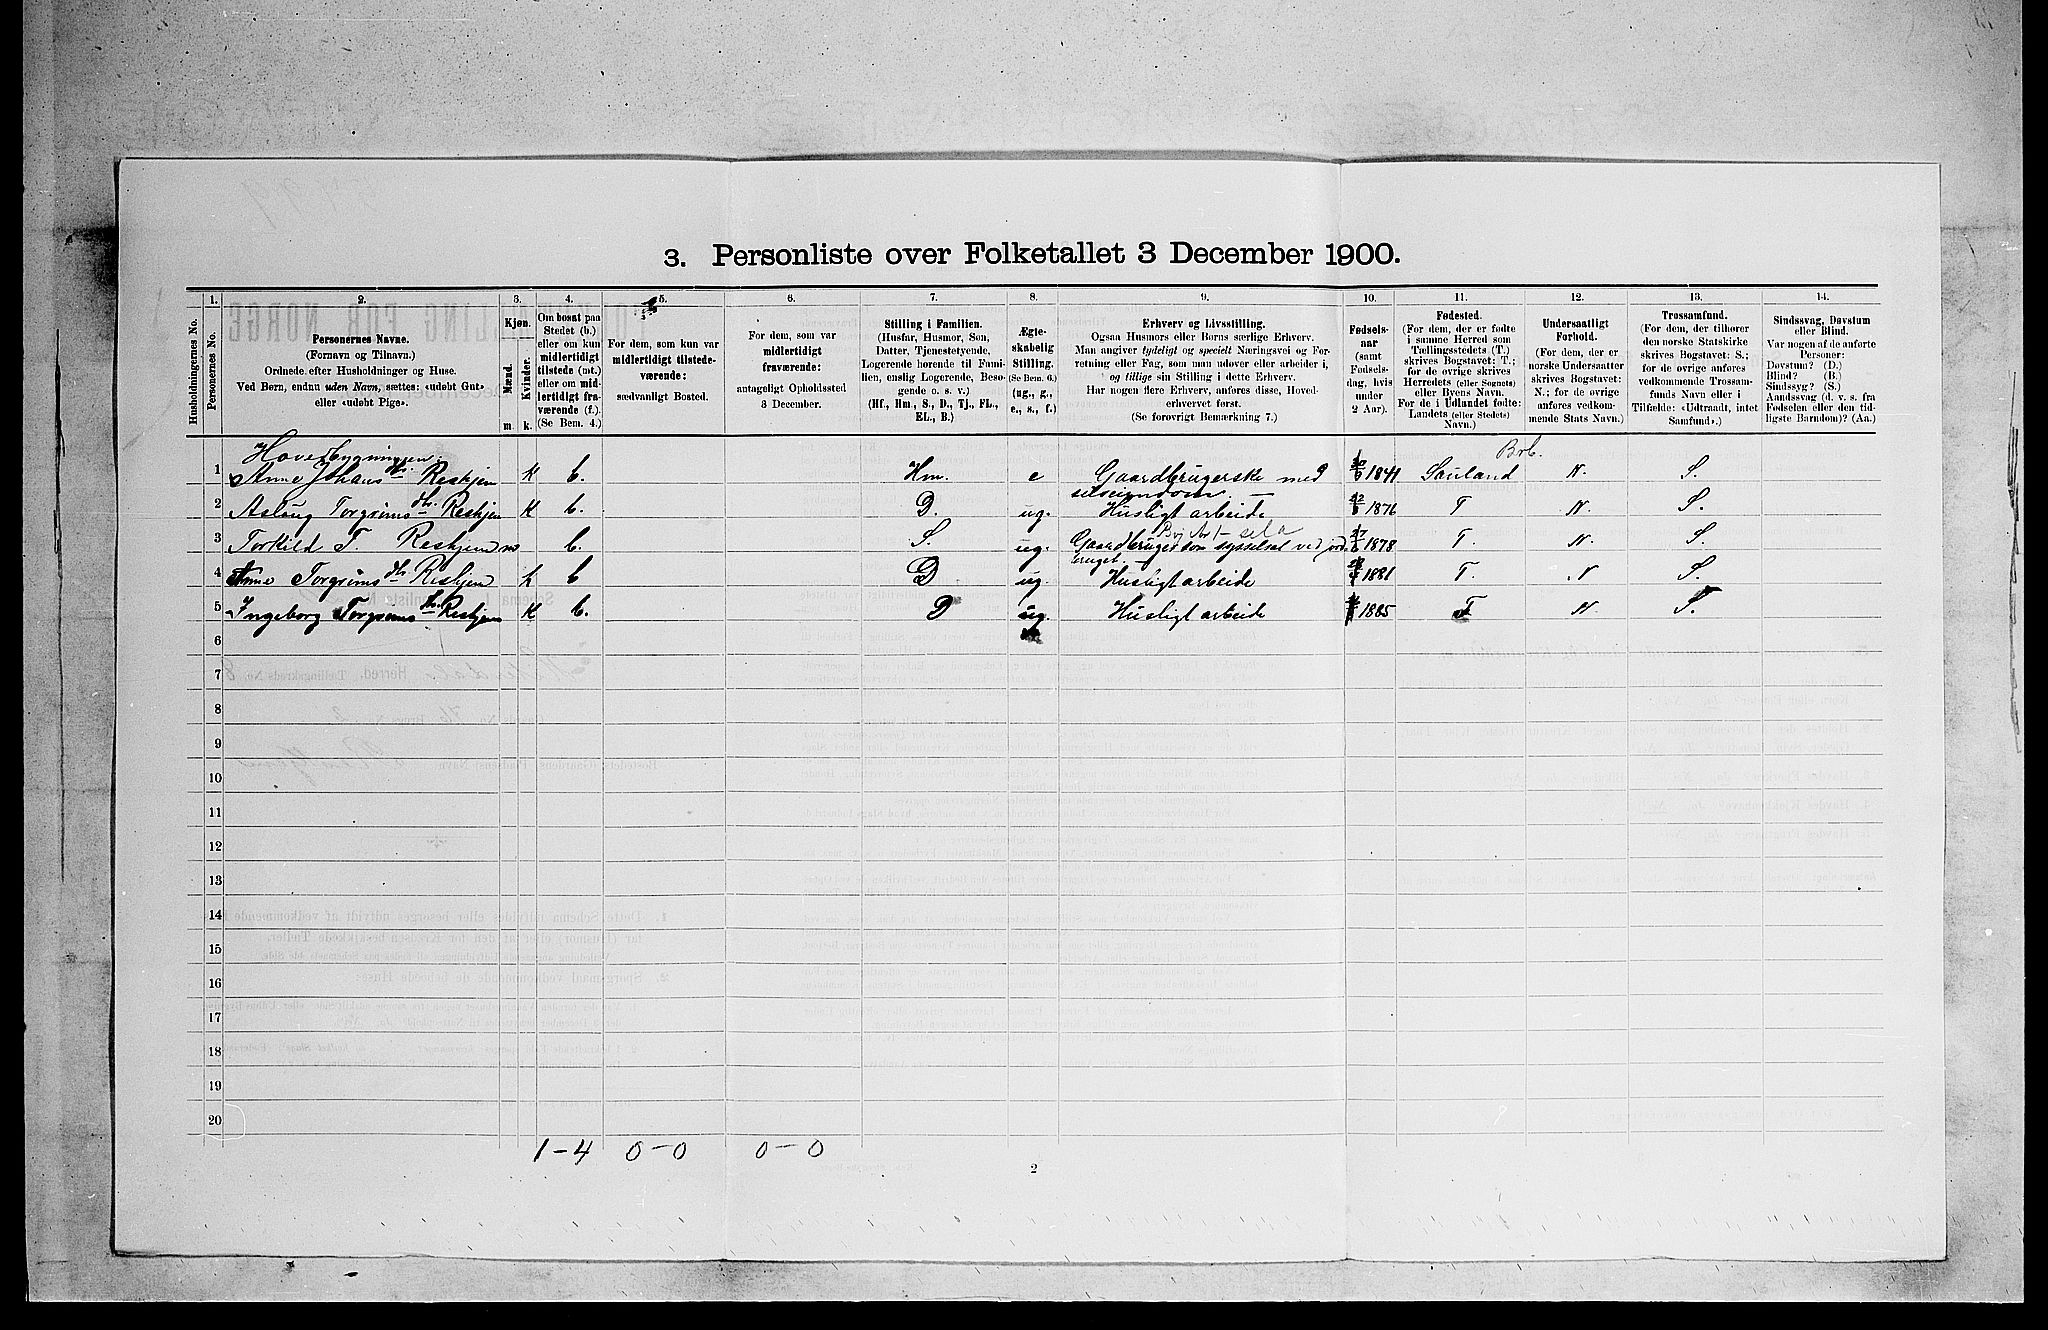 3. Personliste over Folketallet 3 December 1900.
1. 2. 3. 4. 5. 6. 7. 8. 9. 10. 11. 12. 13. 14.
Husholdningernes No.
Personernes No.
Personernes Navne.
(Fornavn og Tilnavn.)
Ordnede efter Husholdninger og Huse.
Ved Børn, endnu uden Navn, sættes: «udøbt Gut»
eller «udøbt Pige».
Kjøn.
Mænd.
Kvinder.
m. k.
Om bosat paa
Stedet (b.)
eller om kun
midlertidigt
tilstede (mt.)
eller om mid-
lertidigt fra-
værende (f.).
(Se Bem. 4.)
For dem, som kun var
midlertidigt tilstede-
værende:
sædvanligt Bosted.
For dem, som var
midlertidigt
fraværende:
antageligt Opholdssted
3 December.
Stilling i Familien.
(Husfar, Husmor, Søn,
Datter, Tjenestetyende,
Logerende hørende til Fami-
lien, enslig Logerende, Besø-
gende o. s. v.)
(Hf., Hm., S., D., Tj., FL.,
EL., B.)
Ægte-
skabelig
Stilling.
(Se Bem. 6.)
(ug., g.,
e., s., f.)
Erhverv og Livsstilling.
Ogsaa Husmors eller Børns særlige Erhverv.
Man angiver tydeligt og specielt Næringsvei og For-
retning eller Fag, som man udøver eller arbeider i,
og tillige sin Stilling i dette Erhverv.
Har nogen flere Erhverv, anføres disse, Hoved-
erhvervet først.
(Se forøvrigt Bemærkning 7.)
Fødsels-
aar
(samt
Fødsels-
dag, hvis
under
2 Aar).
Fødested.
(For dem, der er fødte
i samme Herred som
Tællingsstedets (T.)
skrives Bogstavet: T.;
for de øvrige skrives
Herredets (eller Sognets)
eller Byens Navn.
For de i Udlandet fødte:
Landets (eller Stedets)
Navn.)
Undersaatligt
Forhold.
(For dem, der er
norske Undersaatter
skrives Bogstavet:
N.; for de øvrige
anføres vedkom-
mende Stats Navn.)
Trossamfund.
(For dem, der tilhører
den norske Statskirke
skrives Bogstavet: S.;
for de øvrige anføres
vedkommende Trossam-
funds Navn eller i
Tilfælde: «Udtraadt, intet
Samfund».)
Sindssvag, Døvstum
eller Blind.
Var nogen af de anførte
Personer:
Døvstum? (D.)
Blind? (B.)
Sindssyg? (S.)
Aandssvag (d. v. s. fra
Fødselen eller den tid-
ligste Barndom)? (Aa.)
Hovedbygningen: Brb.
1 Anne Johansdtr. Reskjen k b. Hm. e Gaardbrugerske med selveiendom. 1841 Sauland N. S.
2 Aslaug Torgrimsdtr. Reskjen k b. D. ug. Husligt arbeide 1876 T N. S.
3 Torkild T. Reskjen m b. S. ug. Gaardbrugersøn sysselsat ved jordbruget. 1878 T. N. S.
4 Anne Torgrimsdtr. Reskjen k b D ug. Husligt arbeide 1881 T. N S.
5 Ingeborg Torgrimsdtr. Reskjen k b. D ug. Husligt arbeide 1885 T N. S.
6
7
8
9
10
11
12
13
14
15
16
17
18
19
20
1-4 0-0 0-0
2